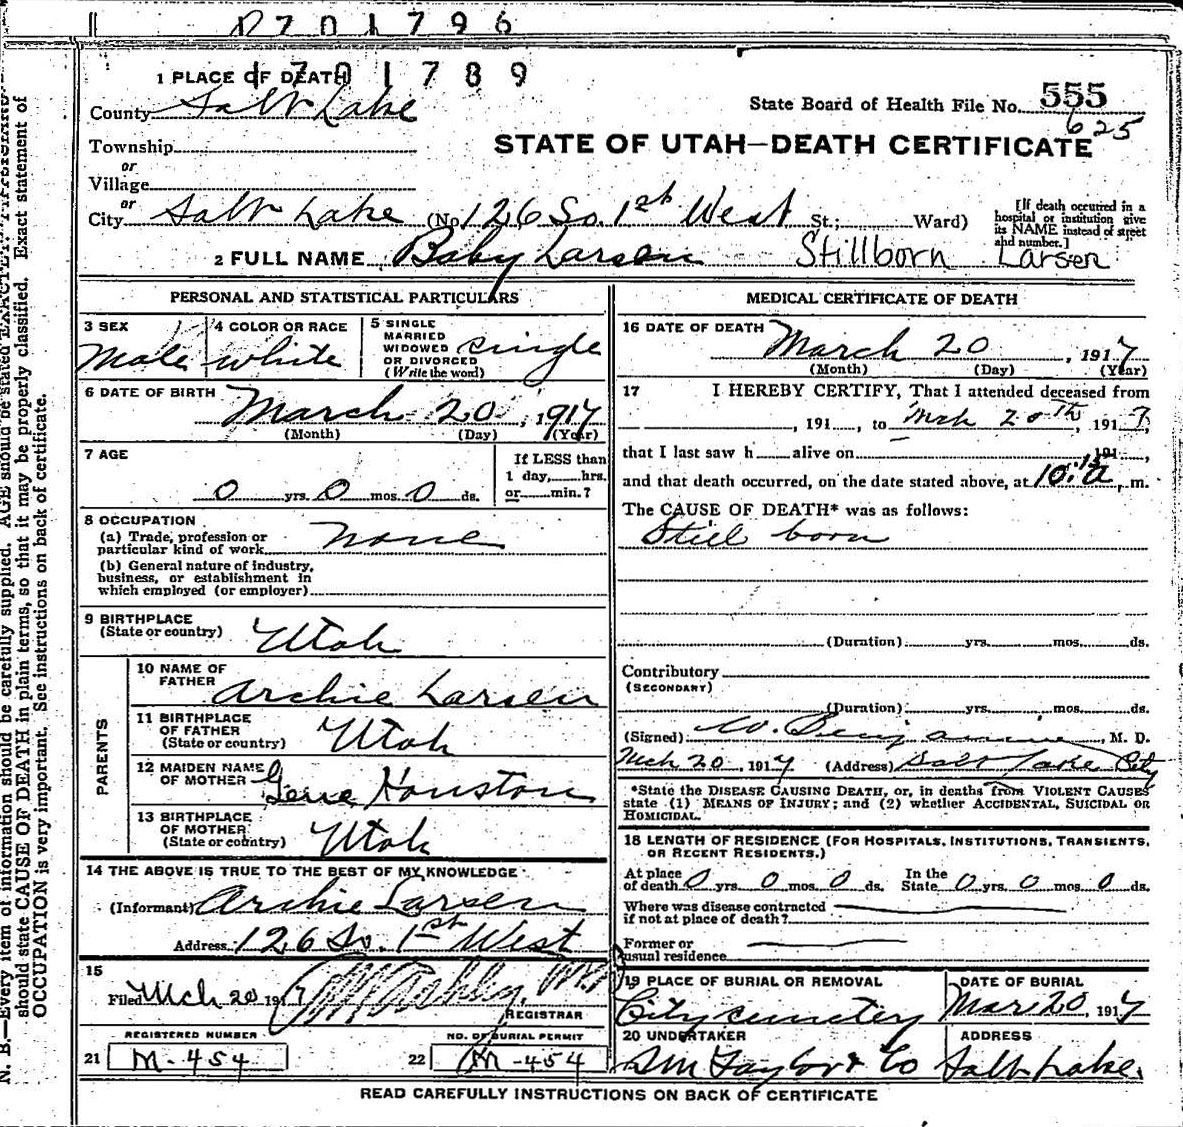 D701796
1701789
1 PLACE OF DEATH
County Salt Lake
State Board of Health File No. 555
625
Township
STATE OF UTAH—DEATH CERTIFICATE
or
Village
or
City Salt Lake (No. 126 So. 1st West St.; Ward)
[If death occurred in a
hospital or institution give
its NAME instead of street
and number.]
2 FULL NAME Baby Larsen Stillborn Larsen
PERSONAL AND STATISTICAL PARTICULARS
3 SEX
Male
4 COLOR OR RACE
White
5 SINGLE
MARRIED
WIDOWED
OR DIVORCED
(Write the word)
Single
6 DATE OF BIRTH
March 20, 1917
(Month) (Day) (Year)
7 AGE
0 yrs. 0 mos. 0 ds.
If LESS than
1 day, hrs.
or min.?
8 OCCUPATION
(a) Trade, profession or
particular kind of work None
(b) General nature of industry,
business, or establishment in
which employed (or employer)
9 BIRTHPLACE
(State or country) Utah
PARENTS
10 NAME OF
FATHER Archie Larsen
11 BIRTHPLACE
OF FATHER
(State or country) Utah
12 MAIDEN NAME
OF MOTHER Gene Houston
13 BIRTHPLACE
OF MOTHER
(State or country) Utah
14 THE ABOVE IS TRUE TO THE BEST OF MY KNOWLEDGE
(Informant) Archie Larsen
Address 126 So. 1st West
15
Filed Mch 20 1917
REGISTRAR
REGISTERED NUMBER
21 M-454
NO. OF BURIAL PERMIT
22 M-454
MEDICAL CERTIFICATE OF DEATH
16 DATE OF DEATH
March 20, 1917
(Month) (Day) (Year)
17 I HEREBY CERTIFY, That I attended deceased from
, 191 , to Mch 20th, 1917,
that I last saw h alive on 191 ,
and that death occurred, on the date stated above, at 10:15 a. m.
The CAUSE OF DEATH* was as follows:
Still born
(Duration) yrs. mos. ds.
Contributory
(SECONDARY)
(Duration) yrs. mos. ds.
(Signed) W. Benjamin, M. D.
Mch 20, 1917 (Address) Salt Lake City
*State the DISEASE CAUSING DEATH, or, in deaths from VIOLENT CAUSES
state (1) MEANS OF INJURY; and (2) whether ACCIDENTAL, SUICIDAL OR
HOMICIDAL.
18 LENGTH OF RESIDENCE (FOR HOSPITALS, INSTITUTIONS, TRANSIENTS,
OR RECENT RESIDENTS.)
At place
of death 0 yrs. 0 mos. 0 ds.
In the
State 0 yrs. 0 mos. 0 ds.
Where was disease contracted
if not at place of death?
Former or
usual residence
19 PLACE OF BURIAL OR REMOVAL
City cemetery
DATE OF BURIAL
Mar 20, 1917
20 UNDERTAKER
S M Taylor & Co
ADDRESS
Salt Lake.
READ CAREFULLY INSTRUCTIONS ON BACK OF CERTIFICATE
N. B.—Every item of information should be carefully supplied. AGE should be stated EXACTLY.
should state CAUSE OF DEATH in plain terms, so that it may be properly classified. Exact statement of
OCCUPATION is very important. See instructions on back of certificate.